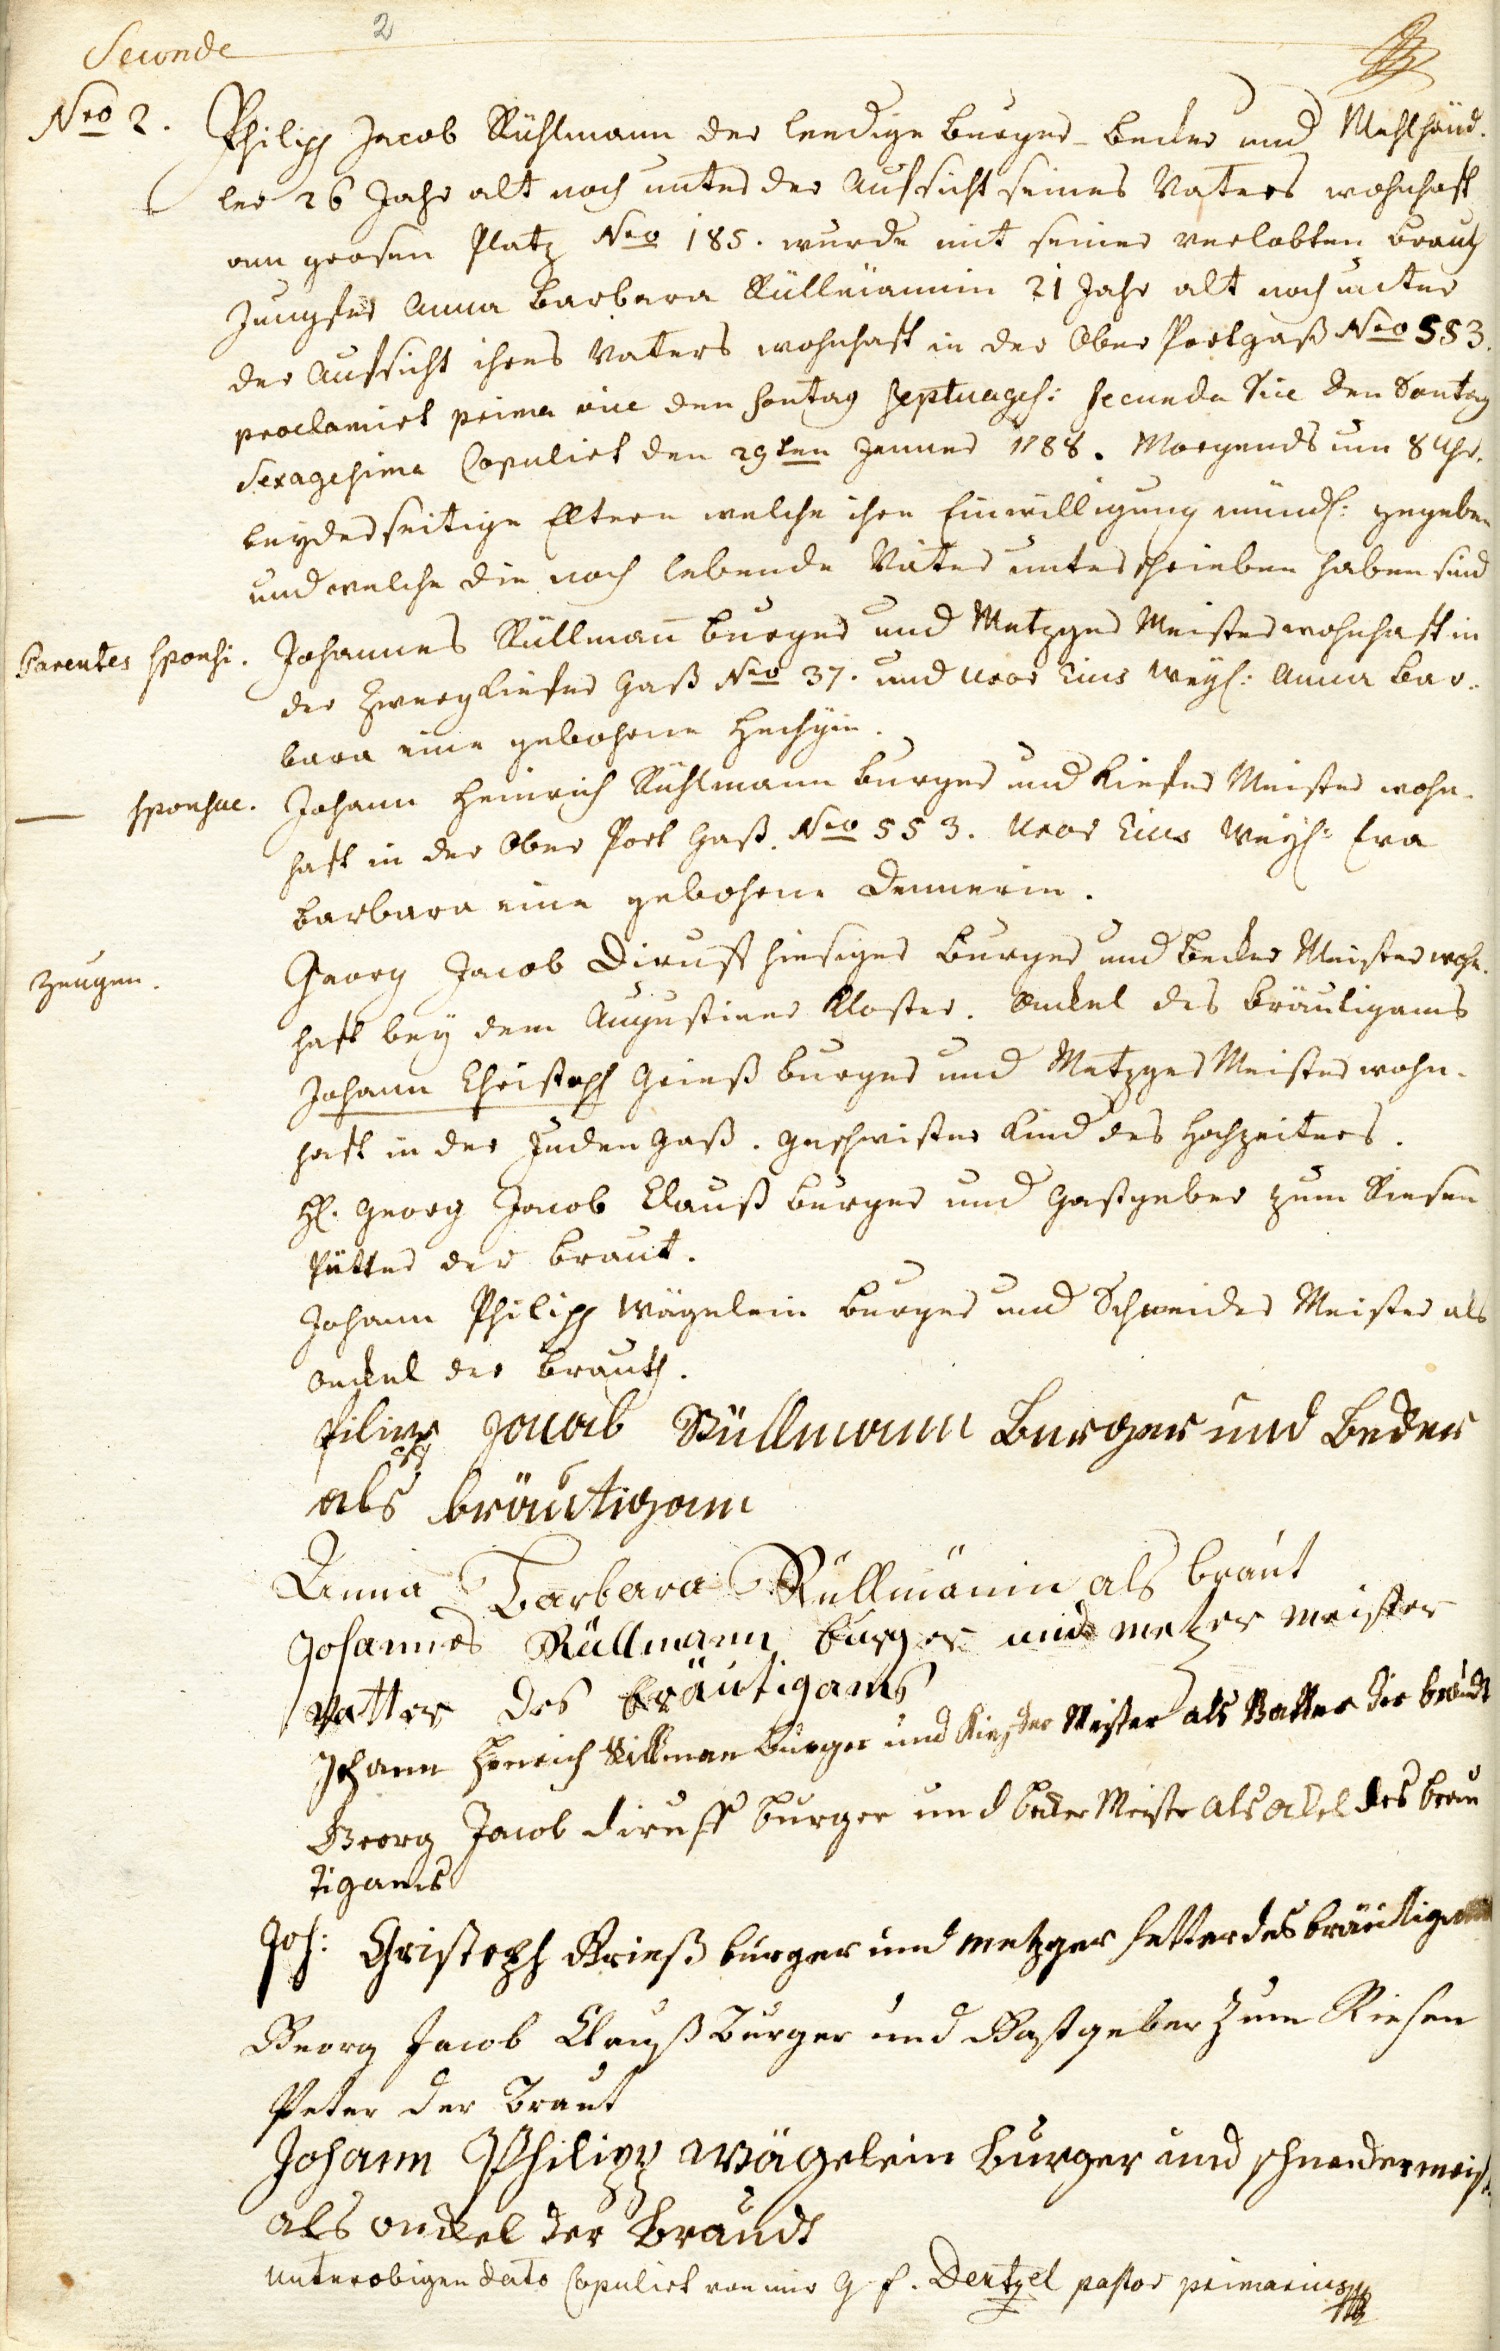 Seconde
2
Nro 2. Philipp Jacob Rühlmann der leedige burger becker und Mehlhänd-
ler 26 Jahr alt noch unter der Aufsicht seines Vaters wohnhaft
am grosen Platz Nro 185. wurde mit seiner verlobten brauth
Jungfer Anna Barbara Rüllmännin 21 Jahr alt noch unter
der Aufsicht ihres Vaters wohnhaft in der Ober Portgaß Nro 553.
proclamirt prima vice den sontag septuages: secunda vice den Sontag
Sexagesima Copulirt den 29ten Jenner 1788. Morgends um 8 Uhr.
beyderseitige Eltern welche ihre Einwilligung mündl: gegeben
und welche die noch lebende Väter unterschrieben haben sind
Parentes sponsi. Johannes Rüllmañ burger und Metzger Meister wohnhaft in
der Zwerg Kiefer Gaß Nro 37. und Uxor Eius weyl: Anna Bar-
bara eine gebohrne
— sponsae. Johann Heinrich Rühlmann burger und Kiefer Meister wohn-
haft in der Ober Port Gaß. Nro 553. Uxor Eius weyl: Eva
Barbara eine gebohrne Dennerin.
Zeugen. Georg Jacob Diruff hiesiger burger und becker Meister wohn-
haft bey dem Augustiner Kloster. Onckel des bräutigams
Johann Christoph Grieß burger und Metzger Meister wohn-
haft in der Juden Gaß. geschwister Kind des Hochzeiters.
H. Georg Jacob Clauß burger und Gastgeber zum Riesen
Pätter der braut.
Johann Philipp Wägelein burger und Schneider Meister als
Onckel der brauth.
filipp Jacob Rüllmann Burger und Becker
als bräutigam
Anna Barbara Rüllmänin als braut
Johannes Rüllmann burger und metzer meister
Vatter des bräutigams
Johann Henrich Rillman burger und Kiefer Meister als Vatter der braudt
Georg Jacob diruff burger und becker Meister als des breu
tigams
Joh: Christoph Grieß burger und metzger fetter des bräutigams
Georg Jacob Clauß Burger und Gastgeber zum Riesen
Peter der Braut
Johann Philipp Wägelein burger und schneidermeist
als onckel der Braudt
unter obigen dato Copulirt von mir G. f. Dentzel pastor primarius